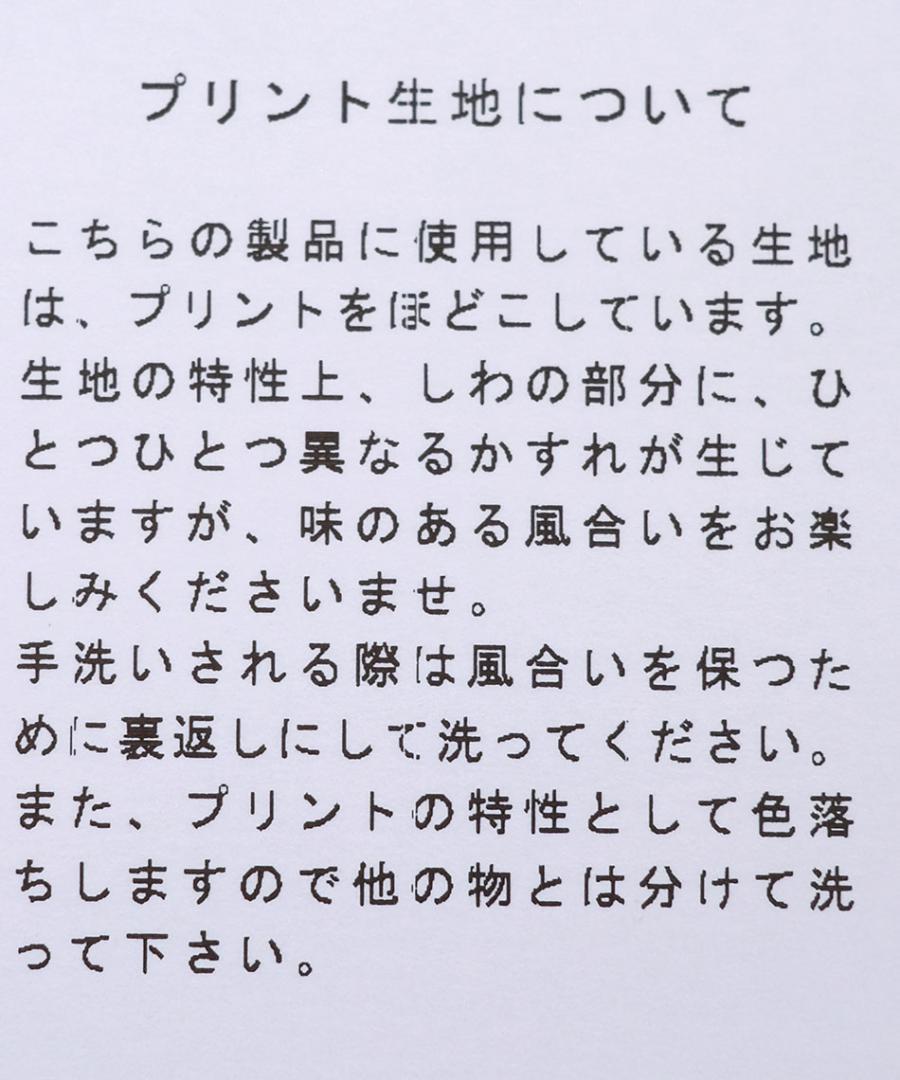 プリント生地について
こちらの製品に使用している生地
は、プリントをほどこしています。
生地の特性上、しわの部分に、ひ
とつひとつ異なるかすれが生じて
いますが、味のある風合いをお楽
しみくださいませ。
手洗いされる際は風合いを保つた
めに裏返しにして洗ってください。
また、プリントの特性として色落
ちしますので他の物とは分けて洗
って下さい。